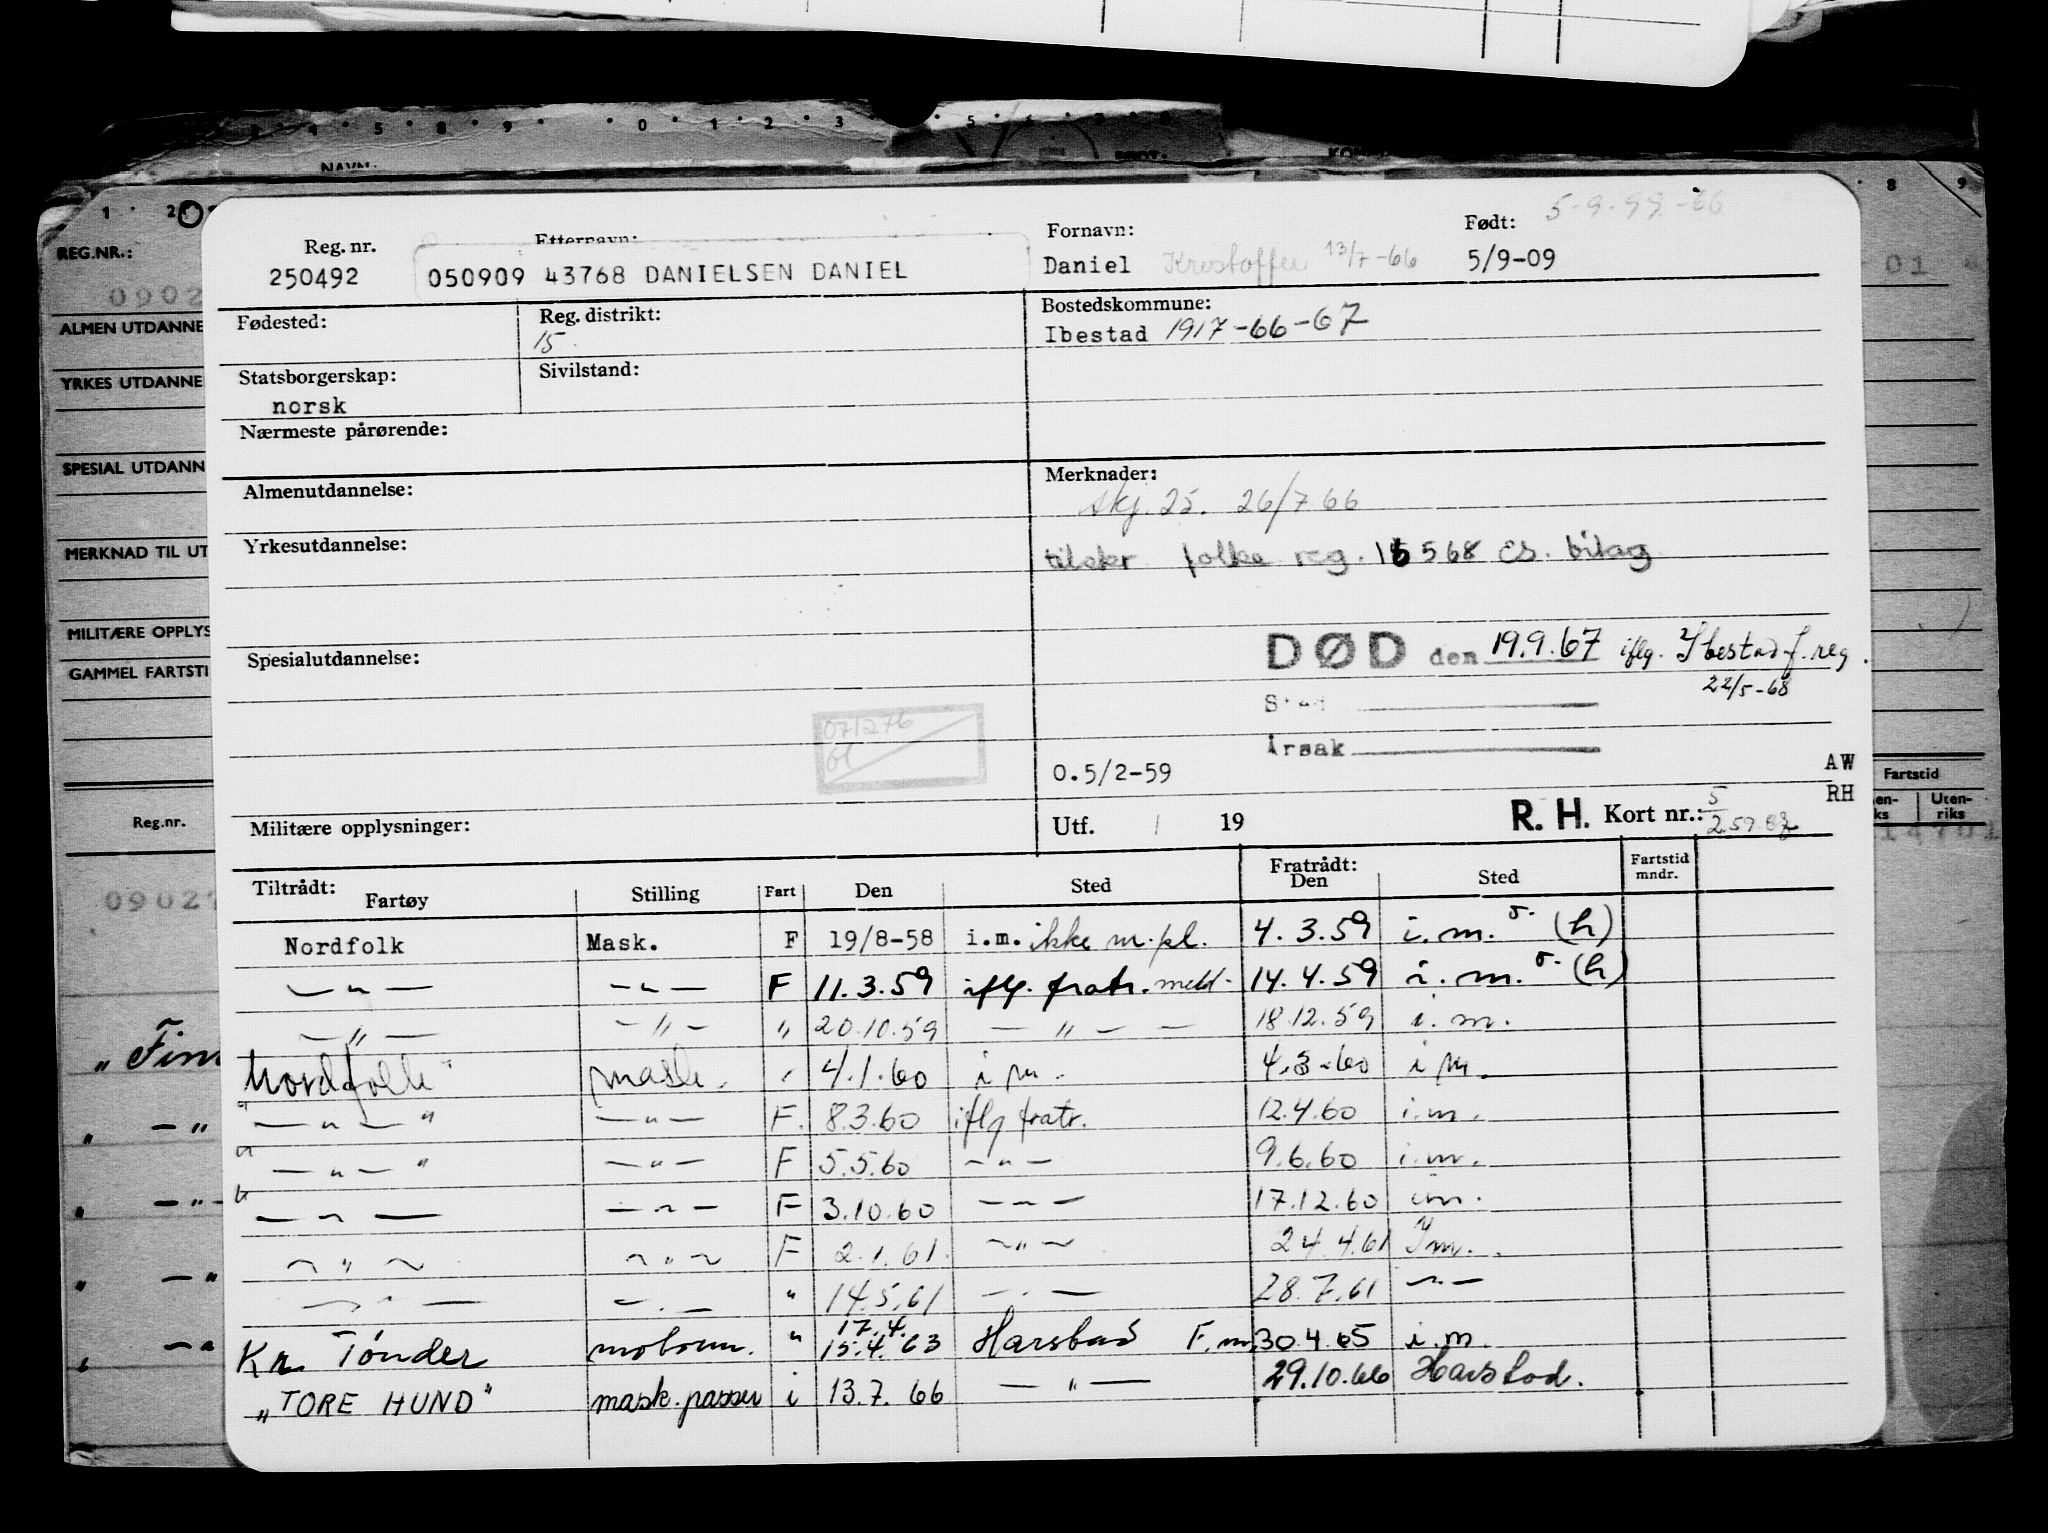 NAVN:
REG.NR.:
ALMEN UTDANNE
YRKES UTDANNE
SPESIAL UTDANN
MERKNAD TIL UT
MILITÆRE OPPLYS
GAMMEL FARTSTI
Reg.nr.
Fartstid
Uten-
riks
Reg. nr. Etternavn: Fornavn: Født: 5-9-99-66
250492 050909 43768 DANIELSEN DANIEL Daniel Kristoffer 13/7-66 5/9-09
Fødested: Reg. distrikt: 15 Bostedskommune:
Ibestad 1917-66-67
Statsborgerskap: Sivilstand:
norsk
Nærmeste pårørende:
Almenutdannelse: Merknader:
skj. 25. 26/7 66
Yrkesutdannelse:
folke reg. 568 bilag
Spesialutdannelse:
DØD den 19.9.67 iflg. Ibestad f.reg.
22/5-68
Sted
071276
Årsak
O.5/2-59 AW
RH
Militære opplysninger: Utf. / 19 R. H. Kort nr.: 5
Tiltrådt: Fratrådt: Fartstid
mndr.
Fartøy Stilling Fart Den Sted Den Sted
Nordfolk Mask. F 19/8-58 i.m. ikke m.pl. 4.3.59 i.m. (h)
— " — — " — F 11.3.59 iflg. fratr. meld. 14.4.59 i.m. (h)
— " — — " — " 20.10.59 — " — — 18.12.59 i.m.
Nordfolk" mask. 4.1.60 i m. 4.3-60 i m.
"— " — " — " — F. 8.3.60 iflg fratr. 12.4.60 i.m.
"— " — " — " — F 5.5.60 — " — 9.6.60 i.m.
— " — — " — F 3.10.60 — " — 17.12.60 im.
— " — — " — F 2.1.61. — " — 24.4.61 Im.
— " — — " — " 14.5.61 — " — 28.7.61 — " —
17.4.
Kr. Tønder motorm. " 15.4.63 Harstad F.m. 30.4.65 i.m.
„TORE HUND" mask.passer i 13.7.66 — " — 29.10.66 Harstad.